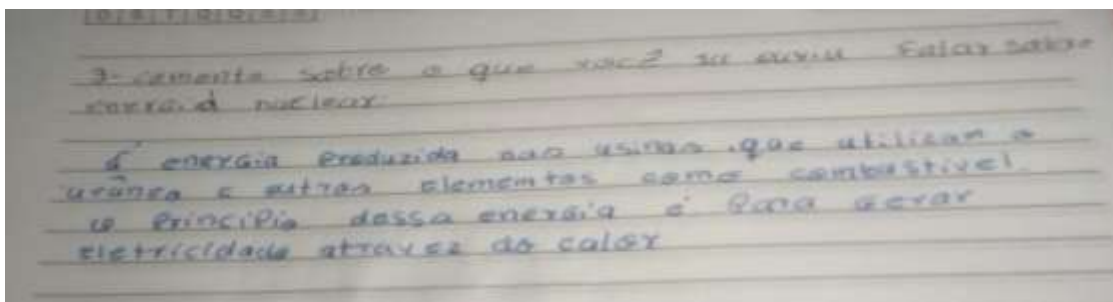 3- comente sobre o que você já ouviu falar sobre
energia nuclear.
é energia produzida nas usinas que utilizam o
urânio e outros elementos como combustível.
o princípio dessa energia é para gerar
eletricidade atravez do calor